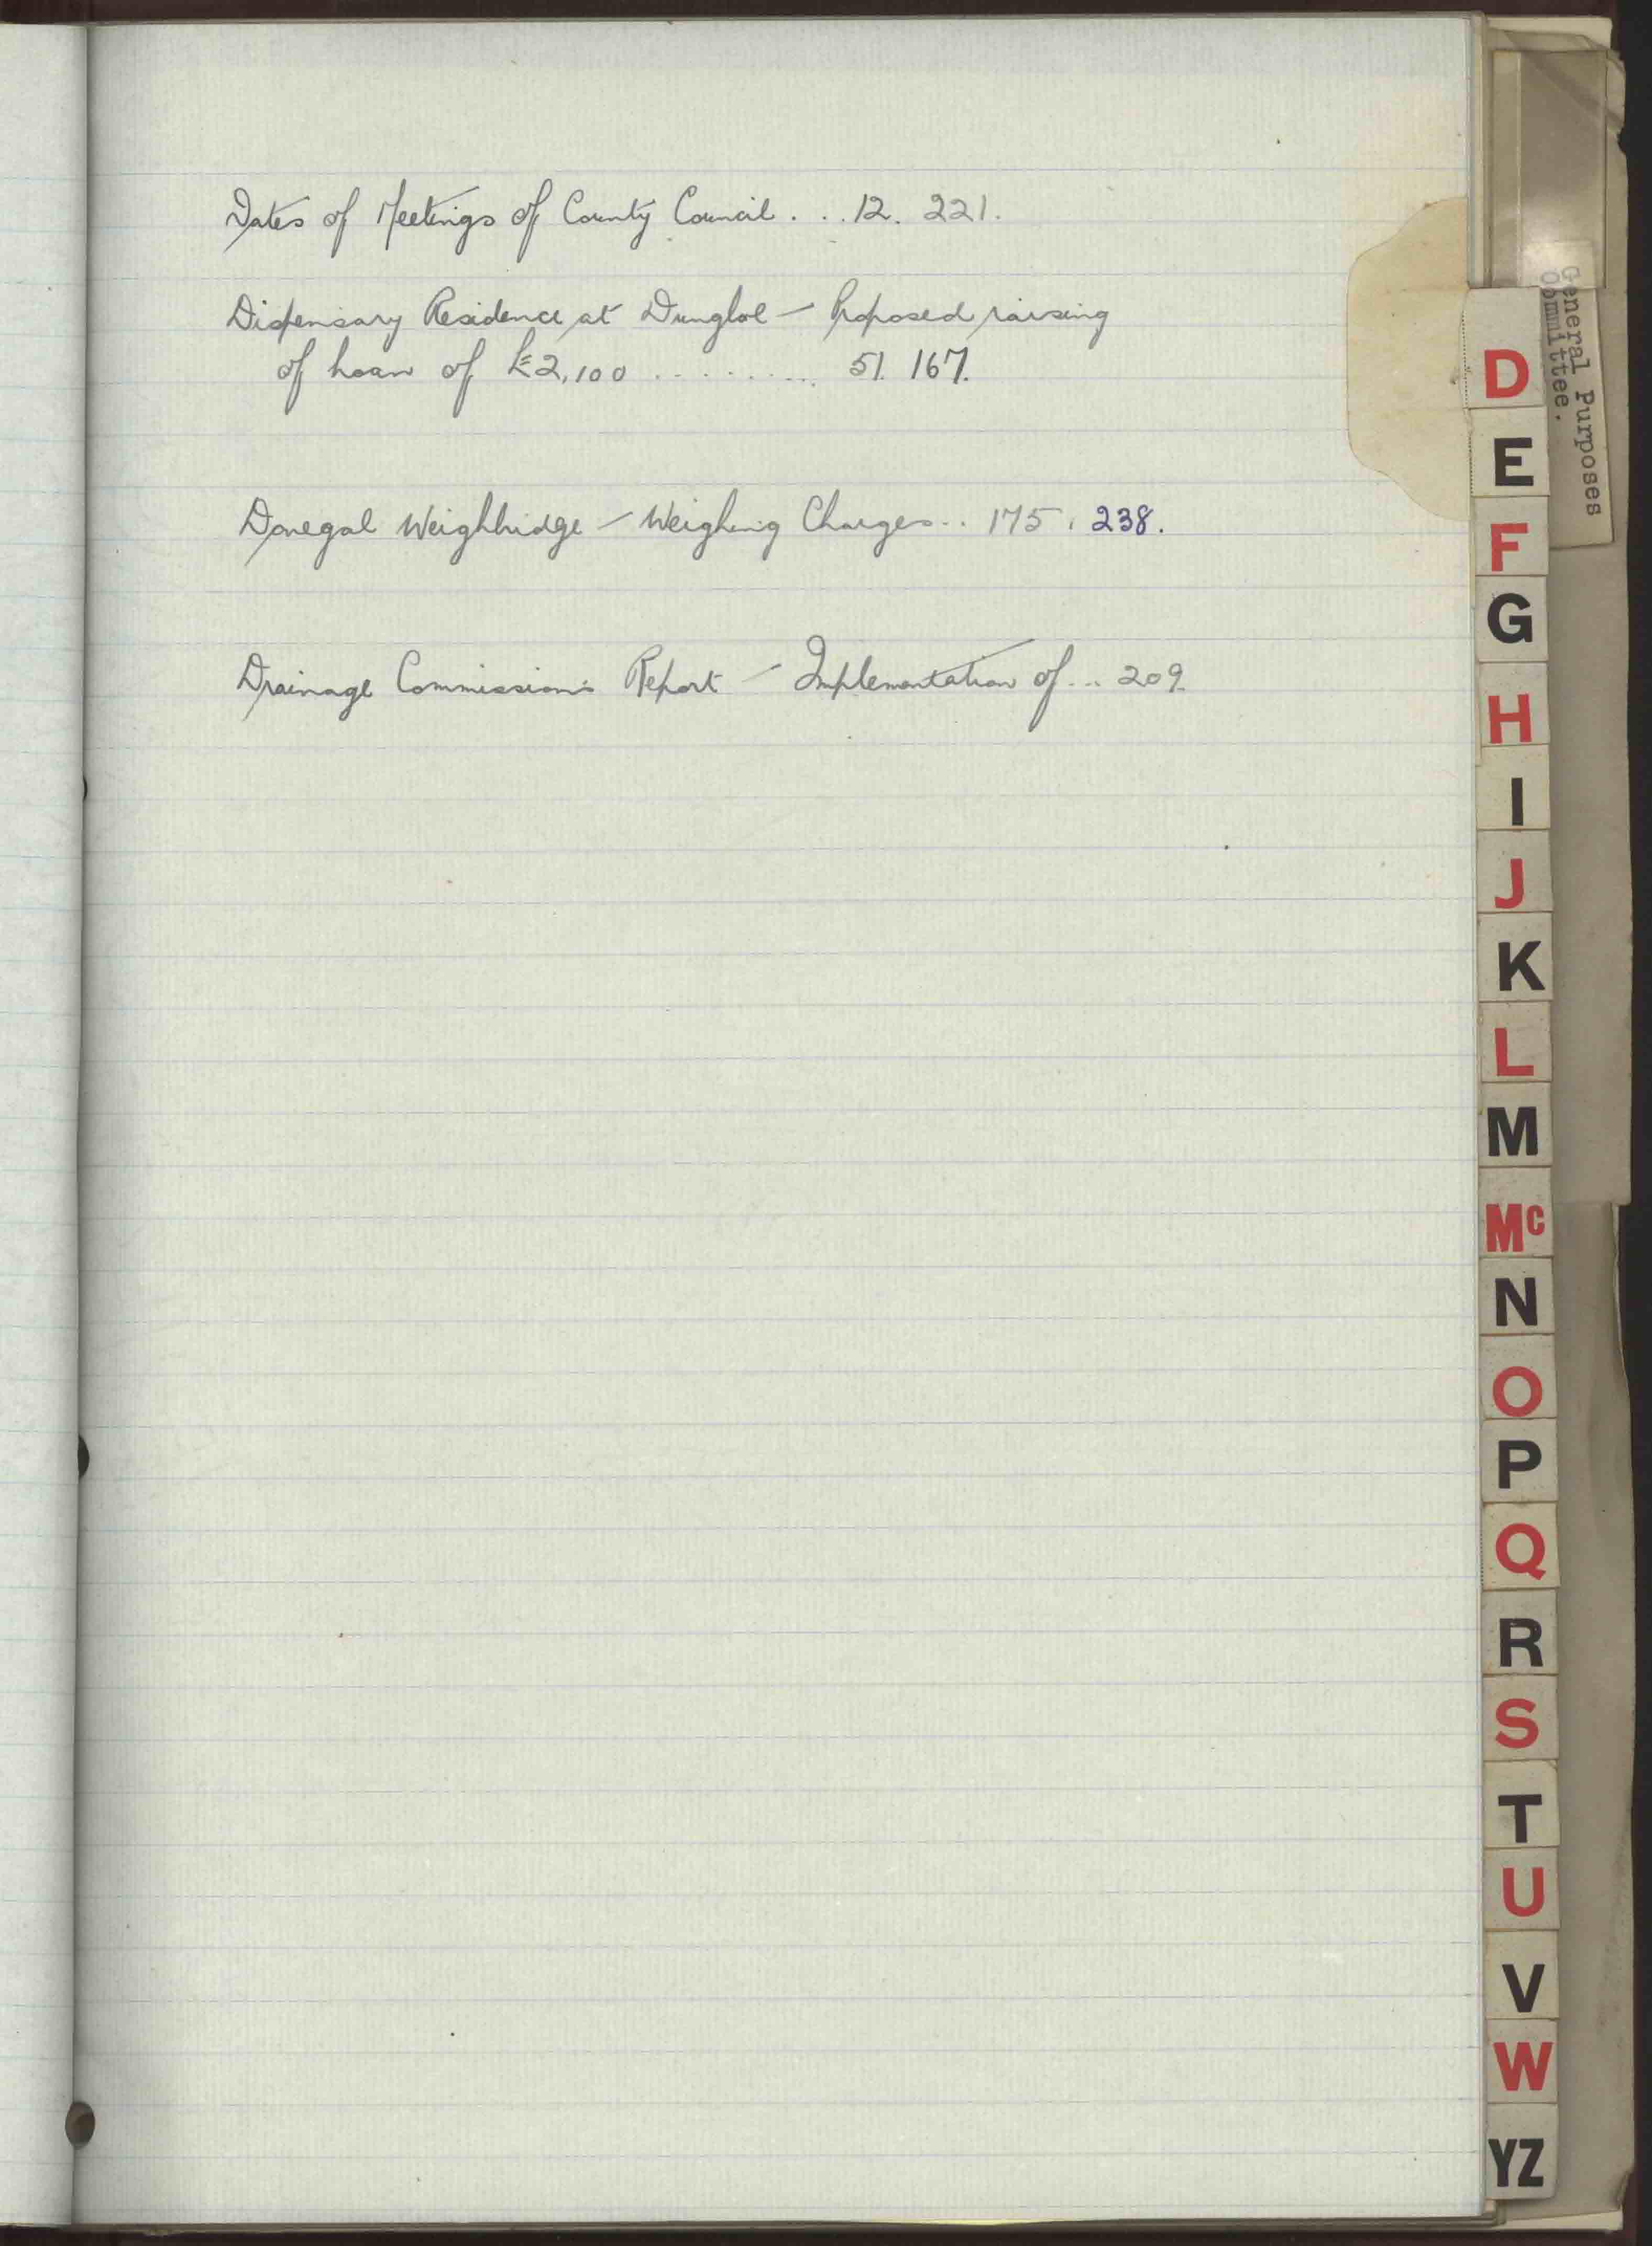 Dates of Meetings of County Council . . . 12. 221.
Dispensary Residence at Dungloe — Proposed raising
of Loan of £2,100 .......... 51. 167.
Donegal Weighbridge — Weighing Charges... 175, 238.
Drainage Commission's Report — Implementation of... 209.
General Purposes
Committee.
D
E
F
G
H
I
J
K
L
M
Mc
N
O
P
Q
R
S
T
U
V
W
YZ